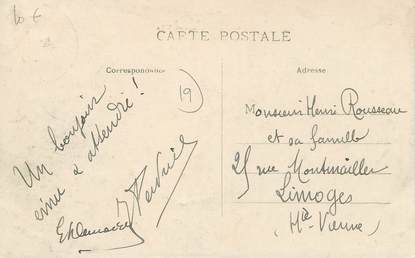 10 €
CARTE POSTALE
Correspondance
Adresse
19
Un bonjour
ému & attendri !
Monsieur Henri Rousseau
et sa famille
25 rue Montmailler
Limoges
(Hte Vienne)